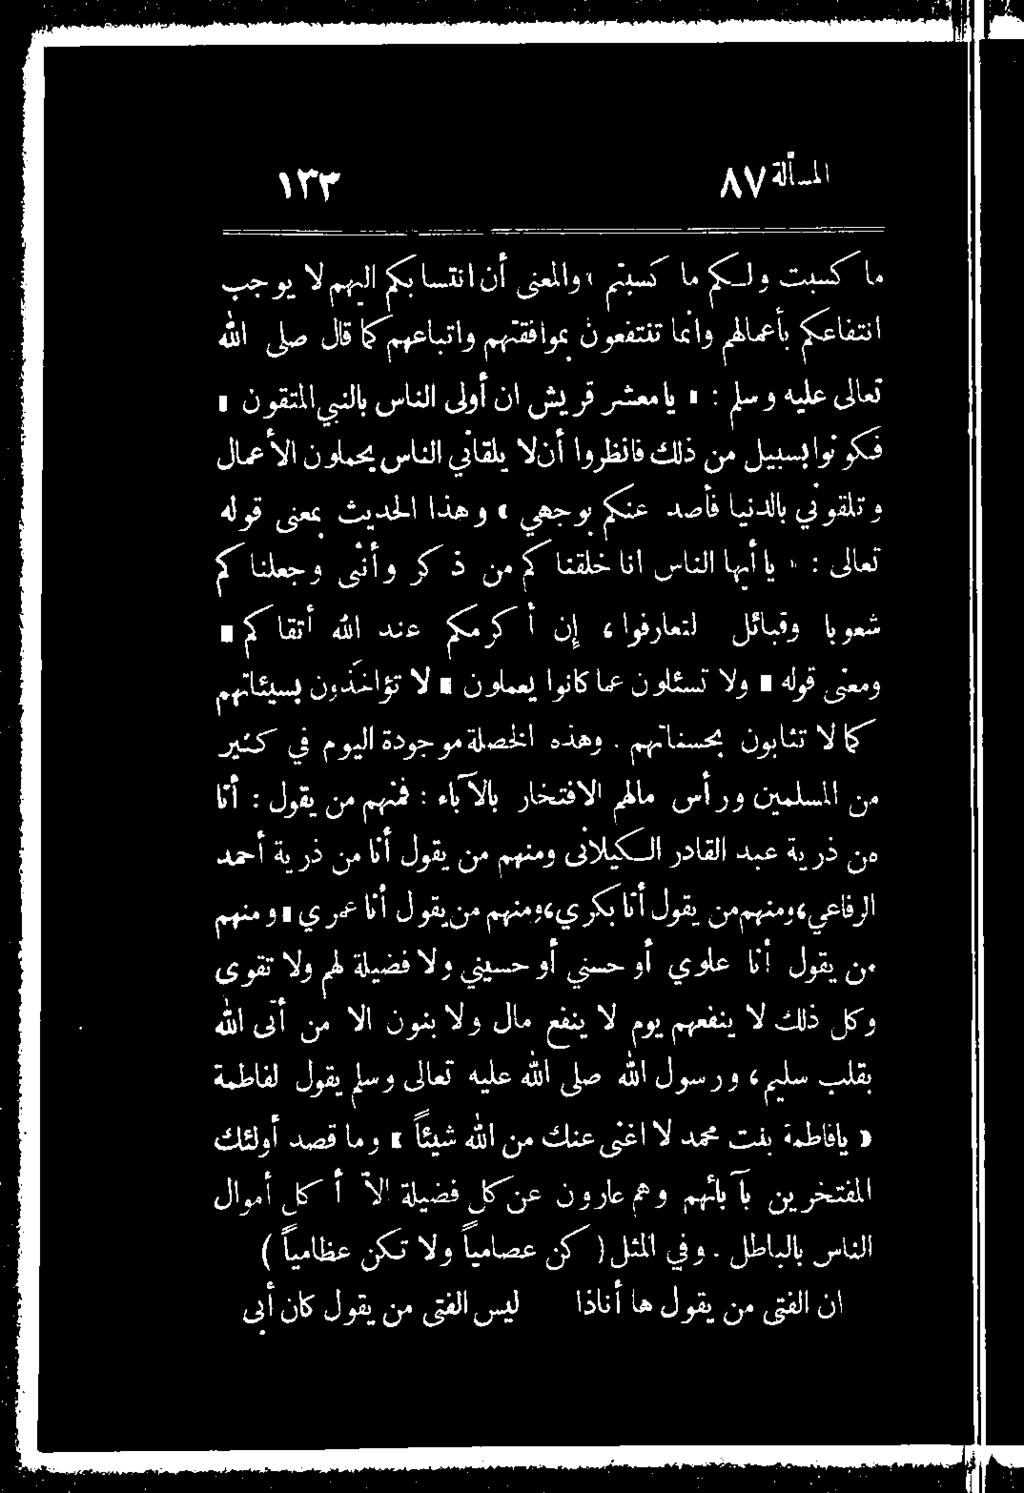 المسألة ٨٧ ١٣٣
ما كسبت ولكم ما كسبتم» والمعنى أن انتسابكم اليهم لا يوجب
انتفاعكم بأعمالهم وانما تنتفعون بموافقتهم واتباعهم كما قال صلى الله
تعالى عليه وسلم : « يامعشر قريش ان أولى الناس بالنبي المتقون »
فكونوا بسبيل من ذلك فانظروا أن لا يلقاني الناس يحملون الأعمال
وتلقوني بالدنيا فأصد عنكم بوجهي » وهذا الحديث بمعنى قوله
تعالى : « يا أيها الناس انا خلقناكم من ذكر وأنثى وجعلناكم
شعوبا وقبائل لتعارفوا ، إن أكرمكم عند الله أتقاكم »
ومعنى قوله « ولا تسئلون عما كانوا يعملون » لا تؤاخذون بسيئاتهم
كما لا تثابون بحسناتهم . وهذه الخصلة موجودة اليوم في كثير
من المسلمين ورأس مالهم الافتخار بالآباء : فمنهم من يقول : أنا
من ذرية عبد القادر الكيلانى ومنهم من يقول أنا من ذرية أحمد
الرفاعي، ومنهم من يقول أنا بكري، ومنهم من يقول أنا عمري ، ومنهم
من يقول أنا علوي أو حسني أو حسيني ولا فضيلة لهم ولا تقوى
وكل ذلك لا ينفعهم يوم لا ينفع مال ولا بنون الا من أتى الله
بقلب سليم، ورسول الله صلى الله عليه تعالى وسلم يقول لفاطمة
« يافاطمة بنت محمد لا اغنى عنك من الله شيئاً » وما قصد أولئك
المفتخرين بآبائهم وهم عارون عن كل فضيلة الا أكل أموال
الناس بالباطل . وفي المثل ( كن عصامياً ولا تكن عظامياً )
ان الفتى من يقول ها أناذا ليس الفتى من يقول كان أبى